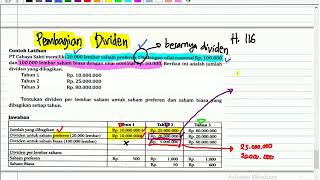 Pembagian Dividen
besarnya dividen
H. 116
Contoh Latihan
PT Cahaya Sakti memiliki 20.000 lembar saham preferen dengan nilai nominal Rp 100.000
dan 100.000 lembar saham biasa dengan nilai nominal Rp 50.000. Berikut ini adalah jumlah
dividen yang dibagikan:
Tahun 1 Rp. 10.000.000
Tahun 2 Rp. 25.000.000
Tahun 3 Rp. 80.000.000
Tentukan dividen per lembar saham untuk saham preferen dan saham biasa yang
dibagikan setiap tahun.
Jawaban
Tahun 1 Tahun 2 Tahun 3
Jumlah yang dibagikan Rp 10.000.000 Rp 25.000.000 Rp 80.000.000
Dividen untuk saham preferen (20.000 lembar) Rp 10.000.000 Rp 20.000.000 Rp 20.000.000
Dividen untuk saham biasa (100.000 lembar) x Rp 5.000.000 Rp 60.000.000
25.000.000
20.000.000
Dividen per lembar saham:
Saham preferen Rp 500 Rp 1.000 Rp 1.000
Saham biasa Rp 50 Rp 600
Activate Windows